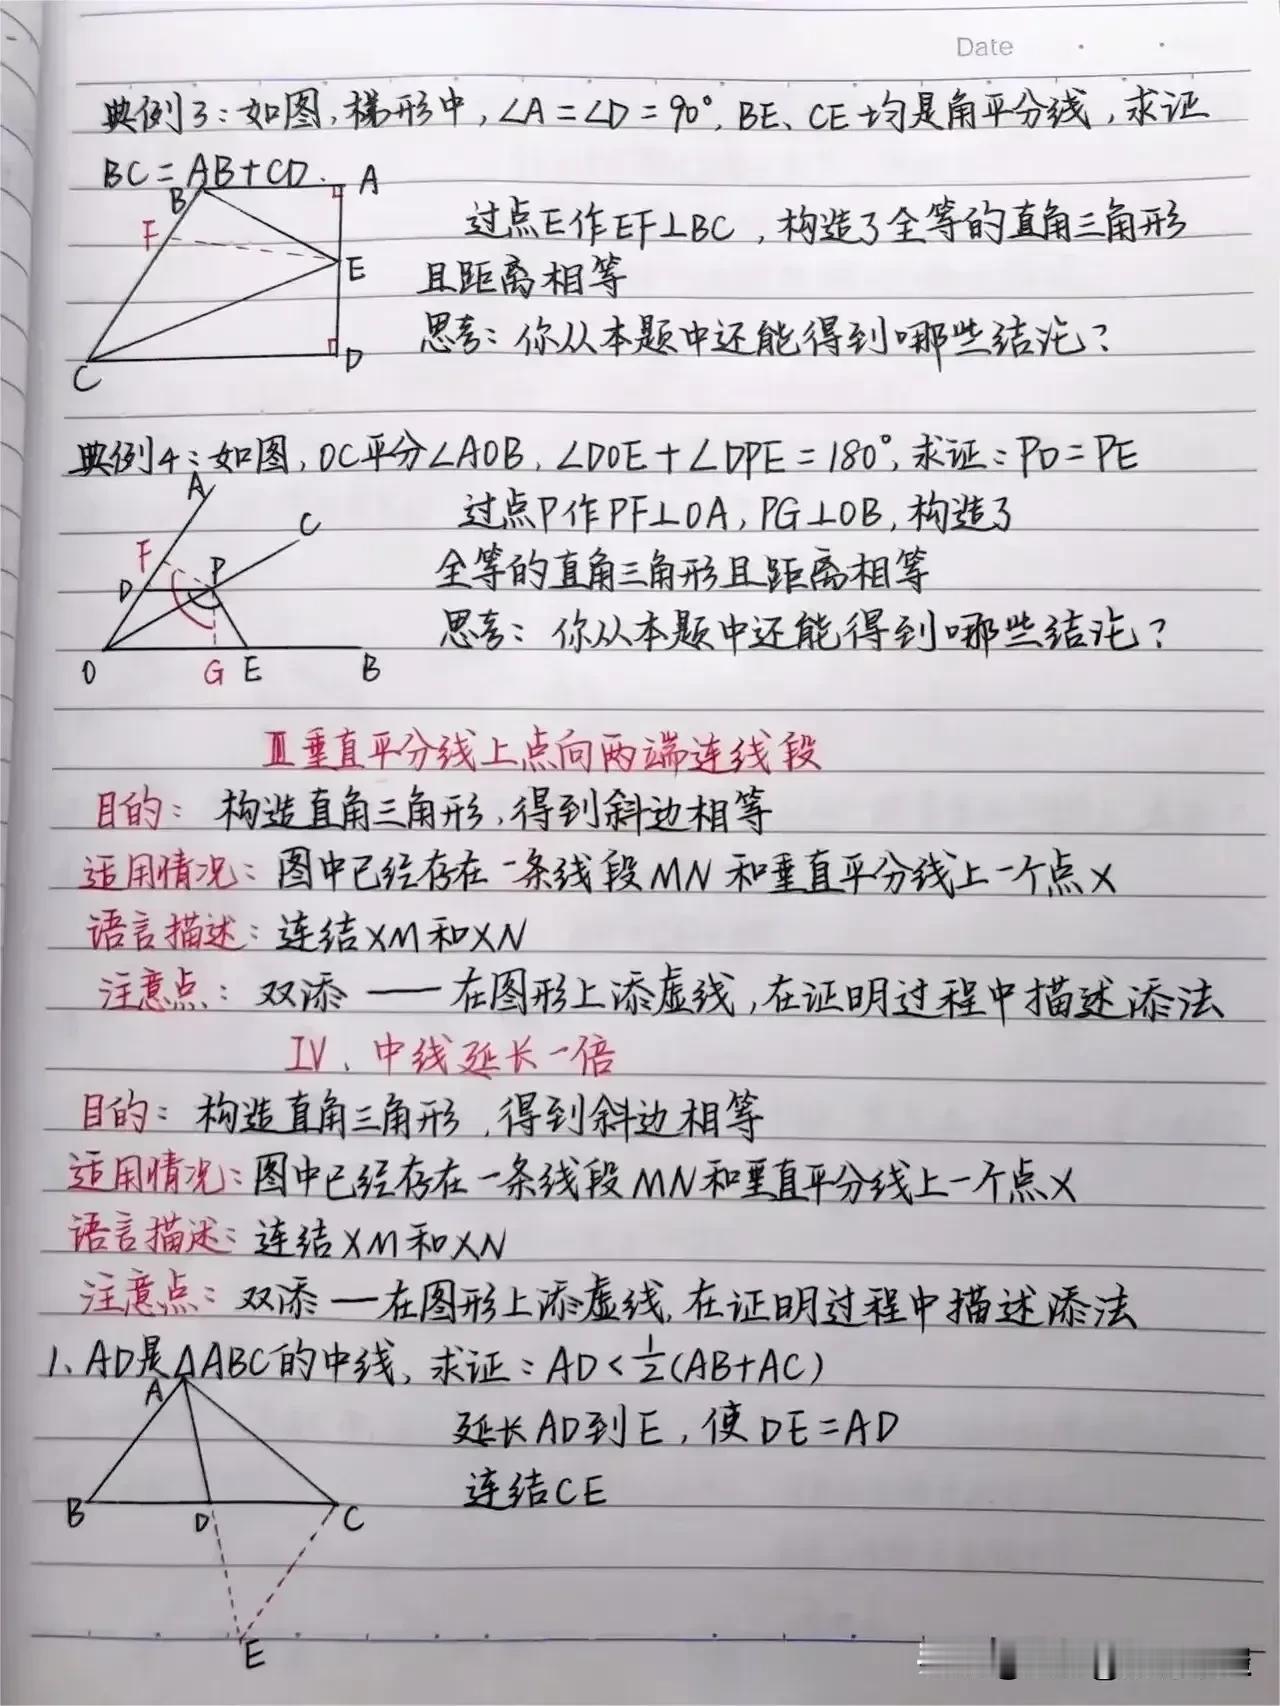 Date
典例3：如图，梯形中，∠A=∠D=90°，BE、CE均是角平分线，求证
BC=AB+CD.
B
A
F
E
C
D
过点E作EF⊥BC，构造了全等的直角三角形
且距离相等
思考：你从本题中还能得到哪些结论？
典例4：如图，OC平分∠AOB，∠DOE+∠DPE=180°，求证：PD=PE
A
C
F
P
D
O
G
E
B
过点P作PF⊥OA，PG⊥OB，构造了
全等的直角三角形且距离相等
思考：你从本题中还能得到哪些结论？
Ⅲ垂直平分线上点向两端连线段
目的：构造直角三角形，得到斜边相等
适用情况：图中已经存在一条线段MN和垂直平分线上一个点X
语言描述：连结XM和XN
注意点：双添——在图形上添虚线，在证明过程中描述添法
Ⅳ、中线延长一倍
目的：构造直角三角形，得到斜边相等
适用情况：图中已经存在一条线段MN和垂直平分线上一个点X
语言描述：连结XM和XN
注意点：双添—在图形上添虚线，在证明过程中描述添法
1、AD是△ABC的中线，求证：AD<½(AB+AC)
A
B
D
C
E
延长AD到E，使DE=AD
连结CE